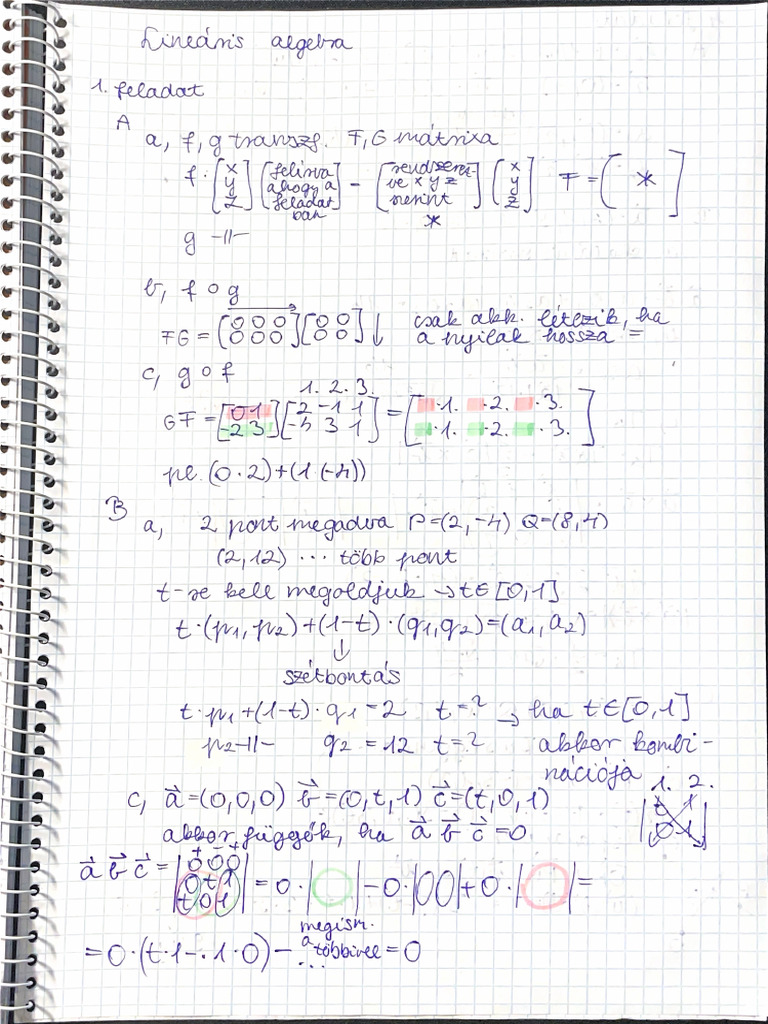 Lineáris algebra
1. feladat
A
a, f, g transzf. F, G mátrixa
f · [x y z] [felírva ahogy a feladat ban] – [rendszerez- ve x y z szerint *] [x y z] F = [ * ]
g -||-
b, f ∘ g
FG = [0 0 0 / 0 0 0] [0 0 / 0 0] ↓ csak akk. létezik, ha
a nyilak hossza =
c, g ∘ f
1. 2. 3.
GF = [0 1 / -2 3] [2 -1 1 / -4 3 1] = [ ·1. ·2. ·3. / ·1. ·2. ·3. ]
pl. (0 · 2) + (1 · (-4))
B
a, 2 pont megadva P=(2, -4) Q=(8, 4)
(2, 12) ... több pont
t-re kell megoldjuk → t∈[0,1]
t·(p1, p2)+(1-t)·(q1, q2)=(a1, a2)
↓
szétbontás
t·p1+(1-t)·q1=2 t=? → ha t∈[0,1]
p2-||- q2 = 12 t=? akkor kombi-
nációja
c, a⃗=(0,0,0) b⃗=(0,t,1) c⃗=(t,0,1) 1. 2.
akkor függők, ha a⃗ b⃗ c⃗=0
a⃗ b⃗ c⃗ = |0 0 0 / 0 t 1 / t 0 1| = 0·| | – 0·|00| + 0·| | =
= 0·(t·1-.1·0) – megism. a többivel ... = 0